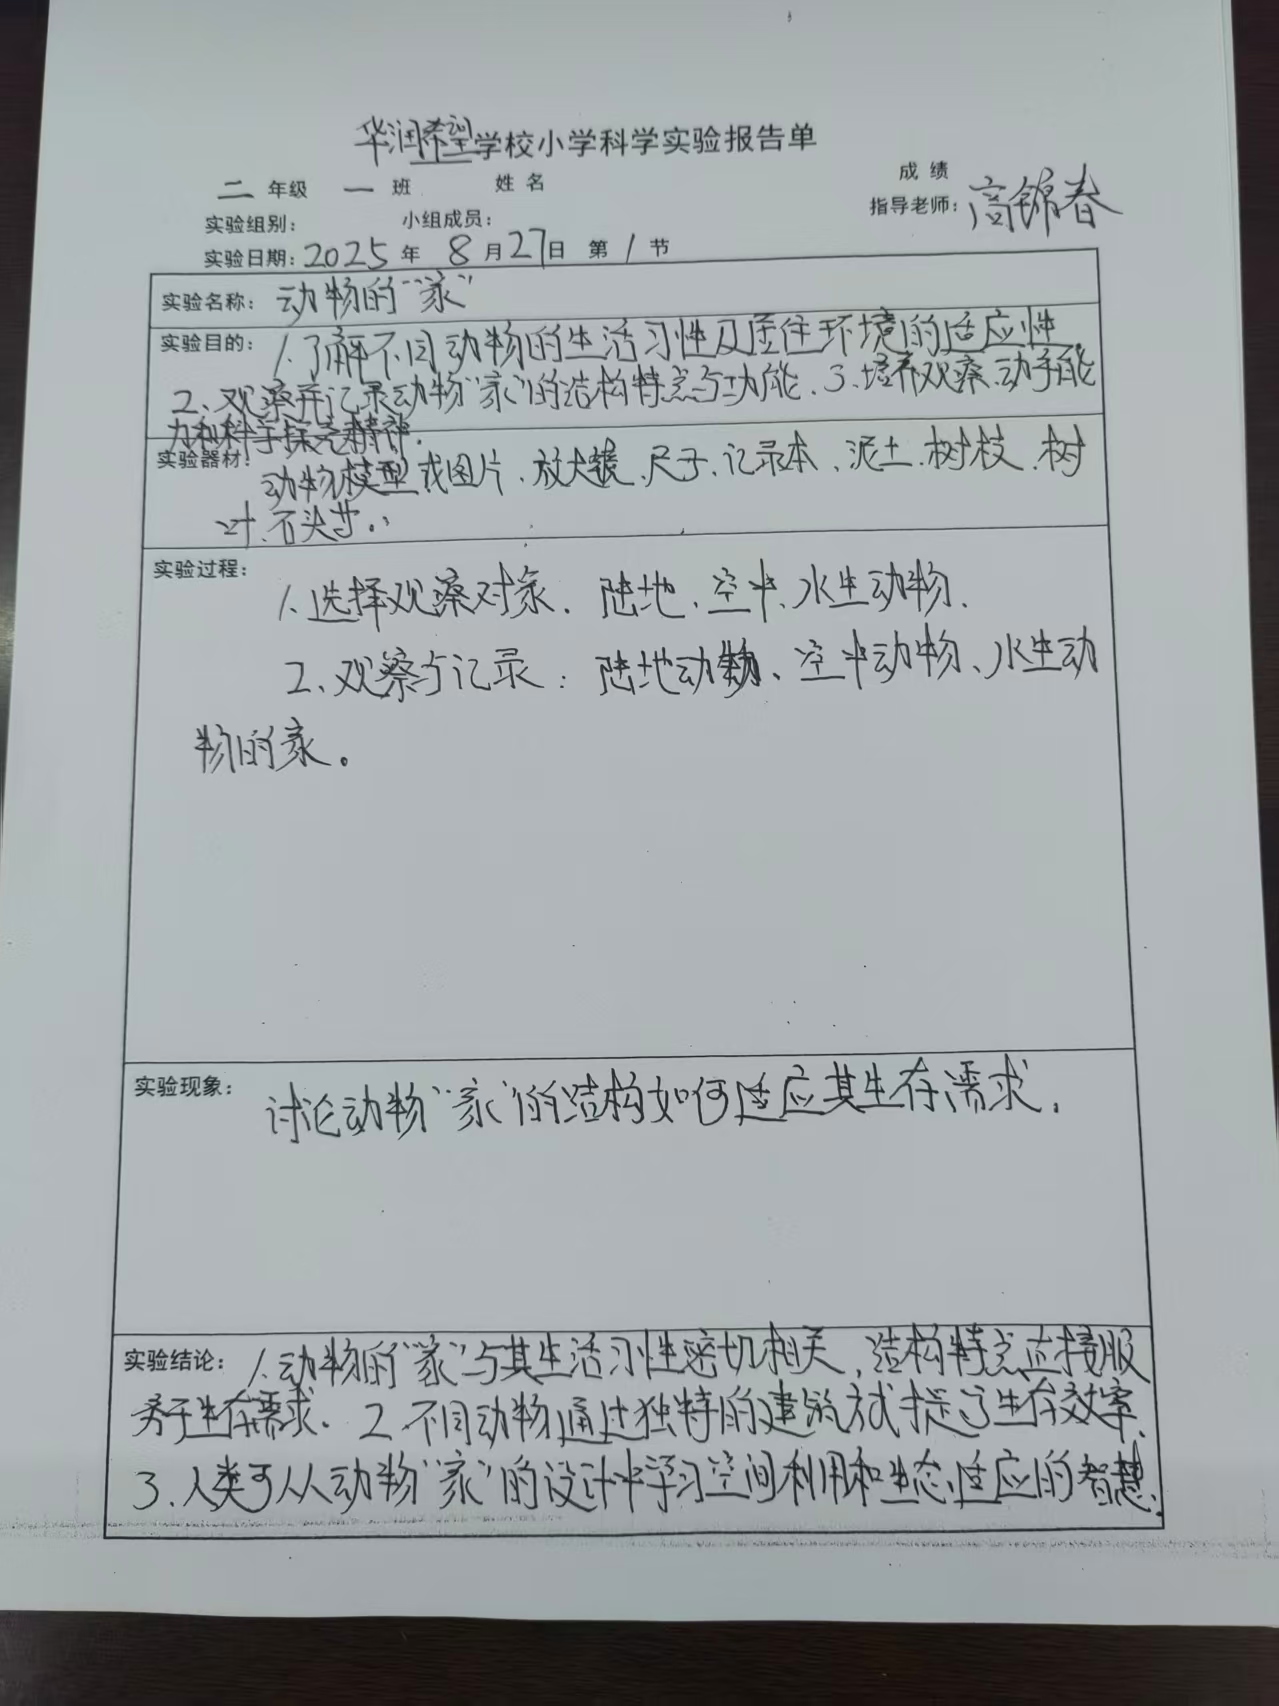 华润希望学校小学科学实验报告单
二 年级 一 班 姓 名 成 绩
实验组别： 小组成员： 指导老师：高锦春
实验日期：2025 年 8 月 27 日 第 1 节
实验名称：动物的“家”
实验目的：1.了解不同动物的生活习性及居住环境的适应性
2、观察并记录动物“家”的结构特点与功能、3、培养观察、动手能
力和科学探究精神.
实验器材：动物模型或图片、放大镜、尺子、记录本、泥土、树枝、树
叶、石头等。
实验过程：
1.选择观察对象、陆地、空中、水生动物.
2、观察与记录：陆地动物、空中动物、水生动
物的家。
实验现象：讨论动物“家”的结构如何适应其生存需求.
实验结论：1.动物的“家”与其生活习性密切相关，结构特点直接服
务于生存需求. 2 不同动物通过独特的建筑方式提了生存效率.
3、人类可从动物“家”的设计中学习空间利用和生态适应的智慧.